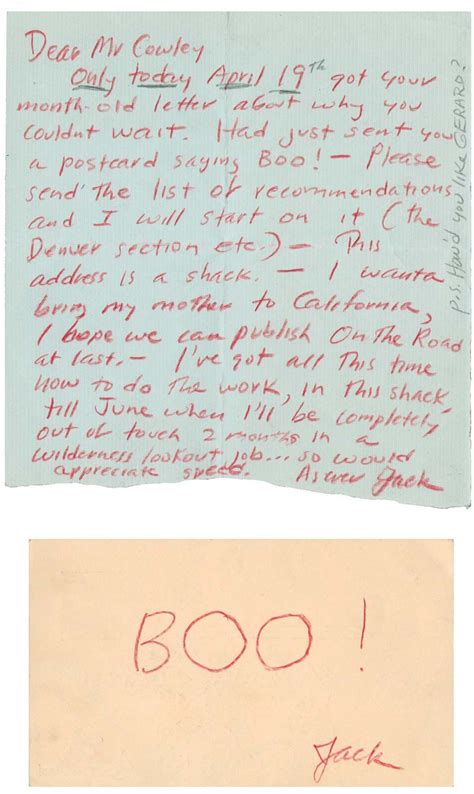 Dear Mr Cowley
Only today April 19th got your
month-old letter about why you
couldnt wait. Had just sent you
a postcard saying BOO! — Please
send the list of recommendations
and I will start on it (the
Denver section etc.) — This
address is a shack. — I wanta
bring my mother to California,
I hope we can publish On The Road
at last. — I've got all This time
now to do The work, in This shack,
till June when I'll be completely
out of touch 2 months in a
wilderness lookout job... so would
appreciate speed. As ever Jack
P.S. How'd you like GERARD?
BOO!
Jack